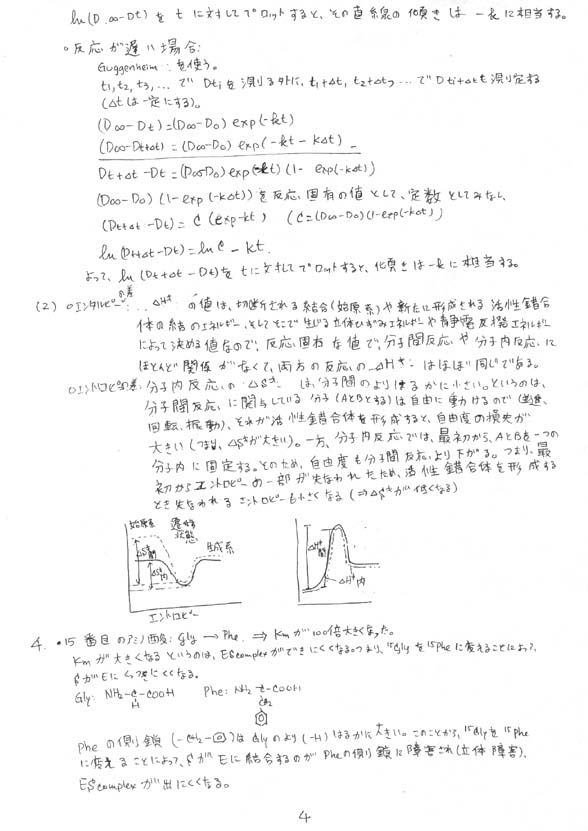 ln(D∞-Dt)を tに対してプロットすると、その直線の傾きは -kに相当する。
。反応が遅い場合:
Guggenheim : を使う。
t1, t2, t3, ... で Dtiを測る外に、t1+Δt, t2+Δt, ... で Dti+Δtも測り定する
(Δtは一定にする)。
(D∞-Dt)=(D∞-D0) exp(-kt)
(D∞-Dt+Δt) = (D∞-D0) exp(-kt - kΔt) -
Dt+Δt -Dt = (D∞-D0) exp(-kt) (1- exp(-kΔt))
(D∞-D0) (1-exp(-kΔt)) を反応固有の値として、定数としてみなし
(Dt+Δt -Dt) = C (exp-kt) (C=(D∞-D0)(1-exp(-kΔt))
ln (Dt+Δt-Dt) = lnC - kt.
よって、ln (Dt+Δt - Dt)を tに対してプロットすると、傾きは -kに相当する。
(2) ○エンタルピーの差: ..ΔH‡ の値は、切断される結合(始原系)や新たに形成される活性錯合
体の結のエネルギー、そしてそこで生じる立体ひずみエネルギーや静電反発エネルギー
によって決める値なので、反応固有な値で、分子間反応や分子内反応に
ほとんど関係がなくて、両方の反応のΔH‡ はほぼ同じである。
○エントロピーの差: 分子内反応のΔS‡ は、分子間のよりはるかに小さい。というのは、
分子間反応に関与している分子(AとBとする)は自由に動けるので(並進、
回転、振動)、それが活性錯合体を形成すると、自由度の損失が
大きい(つまり、ΔS‡が大きい)。一方、分子内反応では、最初から、AとBを一つの
分子内に固定する。そのため、自由度も分子間反応より下がる。つまり、最
初からエントロピーの一部が失なわれたため、活性錯合体を形成する
とき失なわれるエントロピーも小さくなる (⇒ΔS‡が低くなる)
始原系 遷移状態 生成系
ΔS‡間
ΔS‡内
エントロピー
ΔH‡間
ΔH‡内
4. •15番目のアミノ酸: Gly → Phe. ⇒ Kmが100倍大きくなった。
Kmが大きくなるというのは、ES complexができにくくなる。つまり、15Glyを15Pheに変えることによって、
SがEにくっつきにくくなる。
Gly: NH2-C-COOH Phe: NH2-C-COOH
H CH2
Pheの側鎖 (-CH2-⌬)は Glyのより (-H) はるかに大きい。このことから、15Glyを 15Phe
に変えることによって、SがEに結合するのがPheの側鎖に障害され(立体障害)、
ES complexが出にくくなる。
4